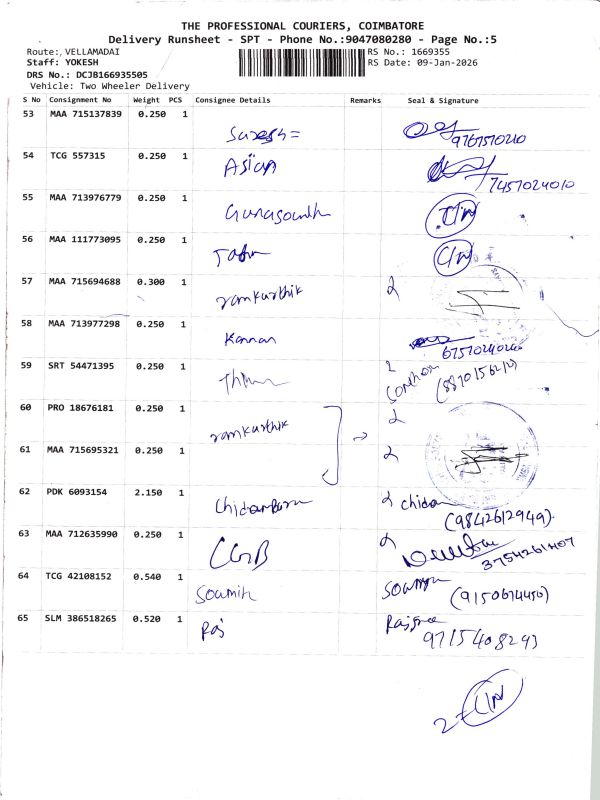 THE PROFESSIONAL COURIERS, COIMBATORE
Delivery Runsheet - SPT - Phone No.:9047080280 - Page No.:5
Route: VELLAMADAI
RS No.: 1669355
Staff: YOKESH
RS Date: 09-Jan-2026
DRS No.: DCJB166935505
Vehicle: Two Wheeler Delivery
S No Consignment No Weight PCS Consignee Details Remarks Seal & Signature
53 MAA 715137839 0.250 1 Suresh
54 TCG 557315 0.250 1 Asian 7457024010
55 MAA 713976779 0.250 1
56 MAA 111773095 0.250 1
57 MAA 715694688 0.300 1 ramkarthik
58 MAA 713977298 0.250 1 Kannan
59 SRT 54471395 0.250 1
60 PRO 18676181 0.250 1 ramkarthik
61 MAA 715695321 0.250 1
62 PDK 6093154 2.150 1 Chidambara chidam
(9842612949)
63 MAA 712635990 0.250 1 3754261407
64 TCG 42108152 0.540 1 Soumih (9150674456)
65 SLM 386518265 0.520 1 Raj Rajsree
9715408293